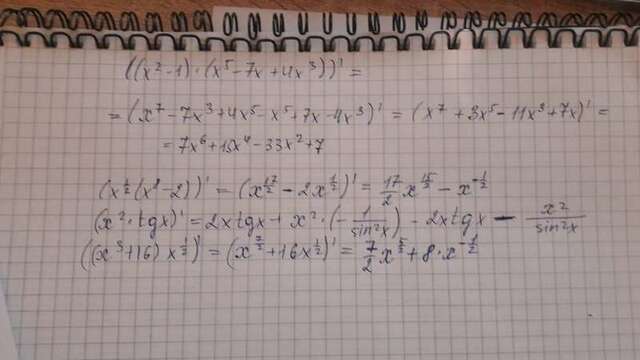 ((x²-1)·(x⁵-7x+4x³))' =
= (x⁷-7x³+4x⁵-x⁵+7x-4x³)' = (x⁷+3x⁵-11x³+7x)' =
= 7x⁶+15x⁴-33x²+7
(x^{1/2}(x⁸-2))' = (x^{17/2}-2x^{1/2})' = 17/2 x^{15/2} - x^{-1/2}
(x²·tgx)' = 2xtgx + x²·(-1/sin²x) - 2xtgx - x²/sin²x
((x³+16)x^{1/2})' = (x^{7/2}+16x^{1/2})' = 7/2 x^{5/2}+8·x^{-1/2}